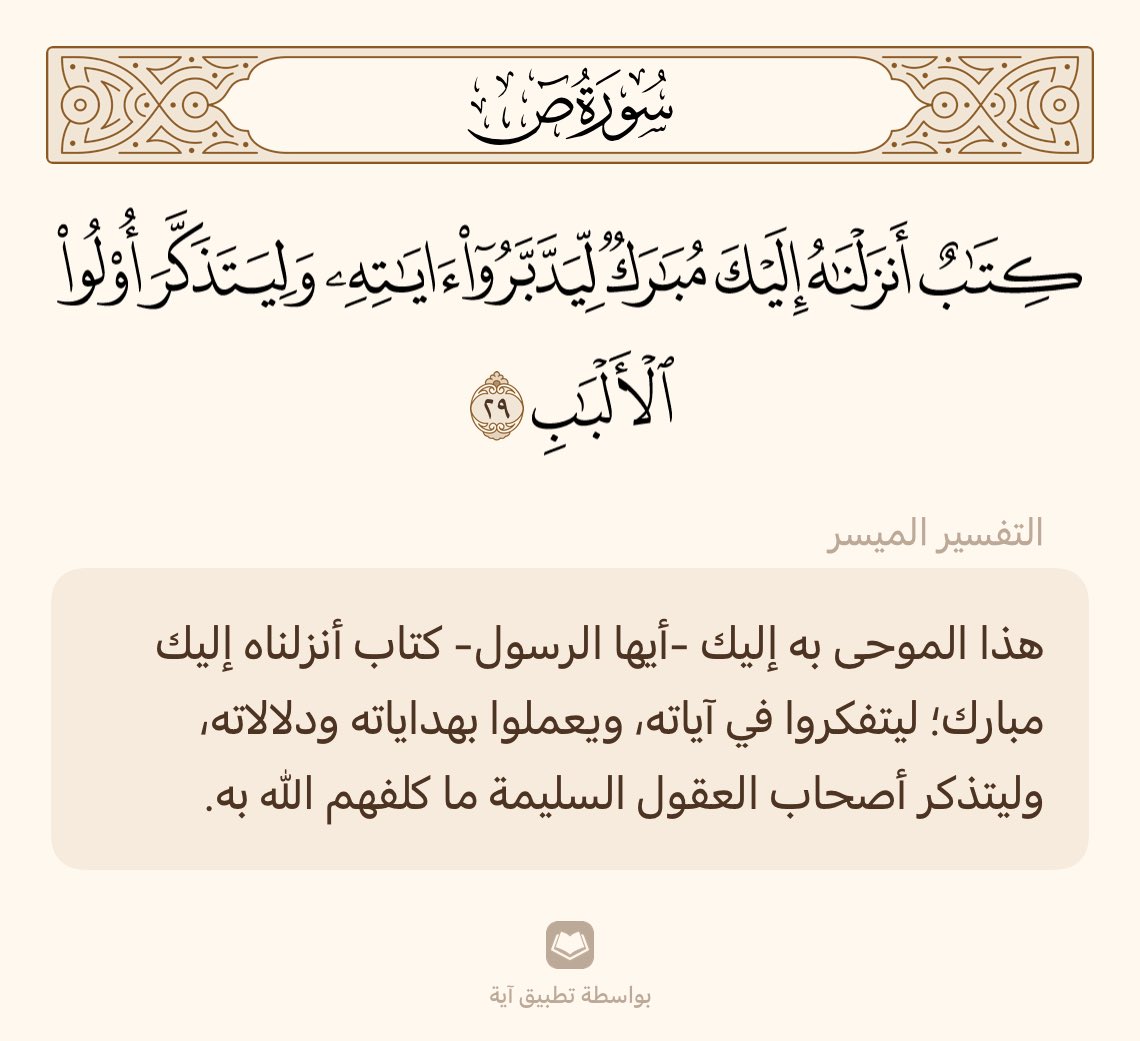 سُورَةُ صٓ
كِتَٰبٌ أَنزَلْنَٰهُ إِلَيْكَ مُبَٰرَكٌ لِّيَدَّبَّرُوٓا۟ ءَايَٰتِهِۦ وَلِيَتَذَكَّرَ أُو۟لُوا۟
ٱلْأَلْبَٰبِ ٢٩
التفسير الميسر
هذا الموحى به إليك -أيها الرسول- كتاب أنزلناه إليك
مبارك؛ ليتفكروا في آياته، ويعملوا بهداياته ودلالاته،
وليتذكر أصحاب العقول السليمة ما كلفهم الله به.
بواسطة تطبيق آية